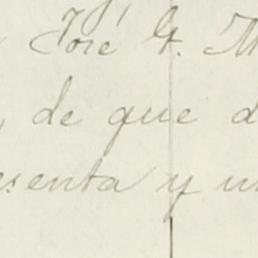 José G. M
, de que d
esenta y un